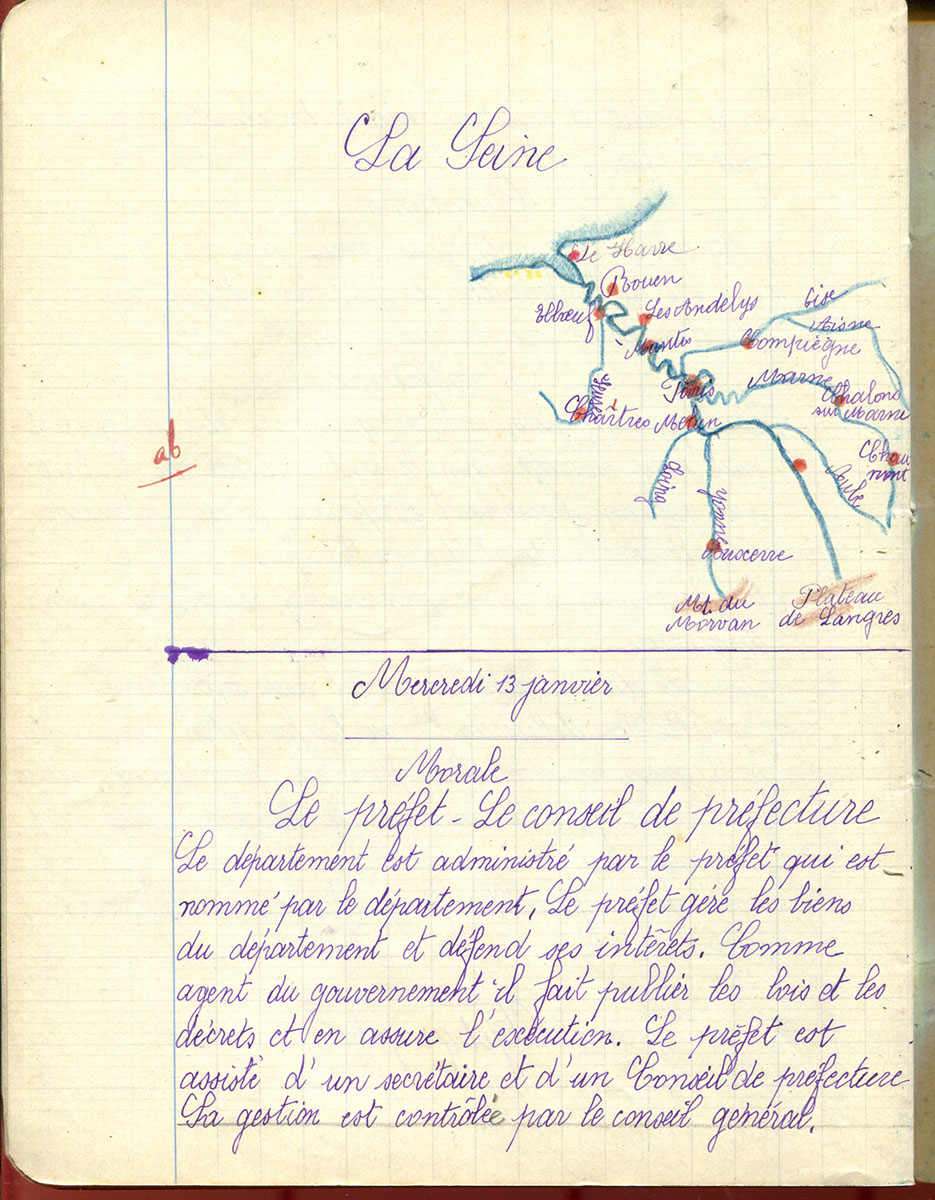 La Seine
Le Havre
Rouen
Elbœuf
Les Andelys
Oise
Aisne
Mantes
Compiègne
Paris
Marne
Châlons
sur Marne
Eure
Chârtres
Melun
Chau
mont
Loing
Yonne
Aube
Auxerre
Mt. du
Morvan
Plateau
de Langres
ab
Mercredi 13 janvier
Morale
Le préfet - Le conseil de préfecture
Le département est administré par le préfet qui est
nommé par le département. Le préfet géré les biens
du département et défend ses intêrets. Comme
agent du gouvernement il fait publier les lois et les
décrets et en assure l'exécution. Le préfet est
assisté d'un secrétaire et d'un Conseil de préfecture
Sa gestion est contrôlée par le conseil général.